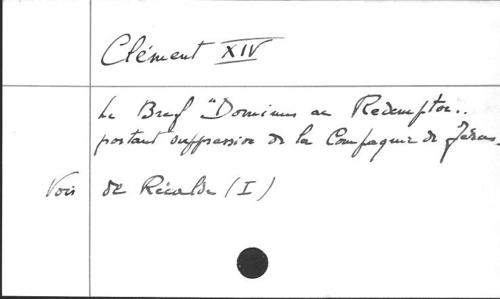 Clément XIV
Le Bref "Dominus ac Redemptor..
portant suppression de la Compagnie de Jésus.
Voir de Récalde (I)